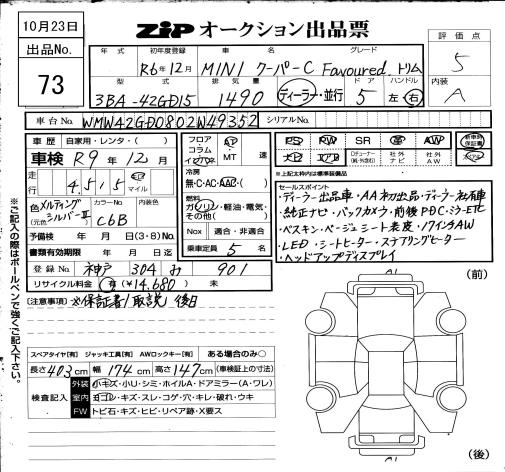 10月23日
ZIP オークション出品票
出品No.
73
年式 初年度登録 車名 グレード
R6年12月 MINI クーパーC Favoured トリム
型式 排気量 ドア ハンドル
3BA-42GD15 1490 ディーラー・並行 5 左・右
評価点
5
内装
A
車台No. WMWA2GD0802W49352 シリアルNo.
車歴 自家用・レンタ・( )
車検 R9年12月
走行 4,515 km マイル
色 メルティングシルバーⅢ (元色) カラーNo. C6B 内装色
予備検 年 月 日(3・8)No.
書類有効期限 年 月 日迄
登録No. 神戸 304 み 901
リサイクル料金 有(¥14,680) 未
フロア コラム インパネ AT MT 速
冷房 無・C・AC・AAC・( )
燃料 ガソリン・軽油・電気・その他( )
Nox 適合・非適合
乗車定員 5 名
PS PW SR 革 AW
ナビ エアB Dチューナー(純・社外含む) 社外ナビ 社外AW
新車時保証書
※上記太枠内は標準装備品
セールスポイント
・ディーラー出品車・AA初出品・ディーラー社有車
・純正ナビ・バックカメラ・前後PDC・ミラーETC
・ベスキン・ベージュシート表皮・17インチAW
・LED・シートヒーター・ステアリングヒーター
・ヘッドアップディスプレイ
[注意事項] ※保証書/取説 後日
スペアタイヤ[有] ジャッキ工具[有] AWロックキー[有] ある場合のみ○
長さ403cm 幅174cm 高さ147cm (車検証上の寸法)
検査記入
外装 小キズ・小U・シミ・ホイルA・ドアミラー(A・ワレ)
室内 ヨゴレ・キズ・スレ・コゲ・穴・キレ・破れ・ウキ
FW トビ石・キズ・ヒビ・リペア跡・X要ス
(前)
(後)
※ご記入の際はボールペンで強くご記入下さい。